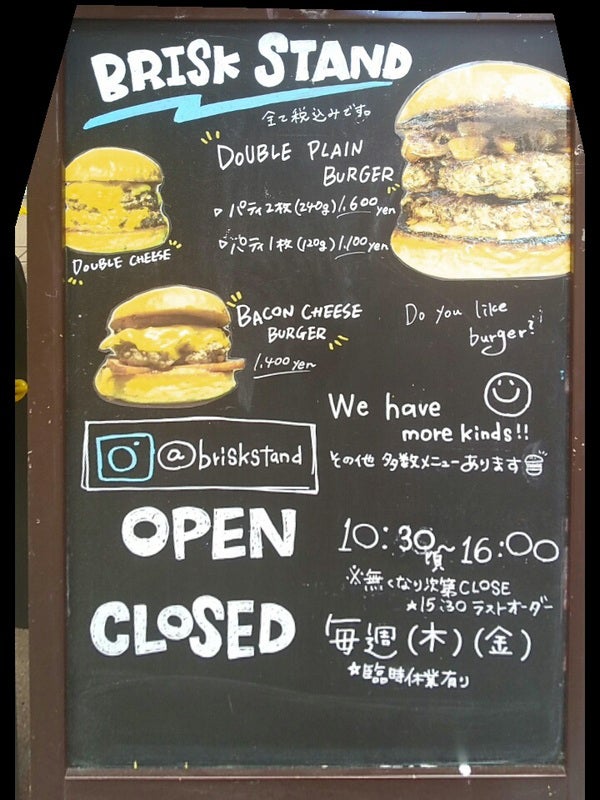 BRISK STAND
全て税込みです。
DOUBLE PLAIN
BURGER
▷ パティ2枚(240g) 1,600 yen
▷ パティ1枚(120g) 1,100 yen
DOUBLE CHEESE
BACON CHEESE
BURGER
1,400 yen
Do you like
burger?
We have
more kinds!!
その他 多数メニューあります
@briskstand
OPEN
10:30頃~16:00
※無くなり次第CLOSE
★15:30 ラストオーダー
CLOSED
毎週(木)(金)
★臨時休業有り